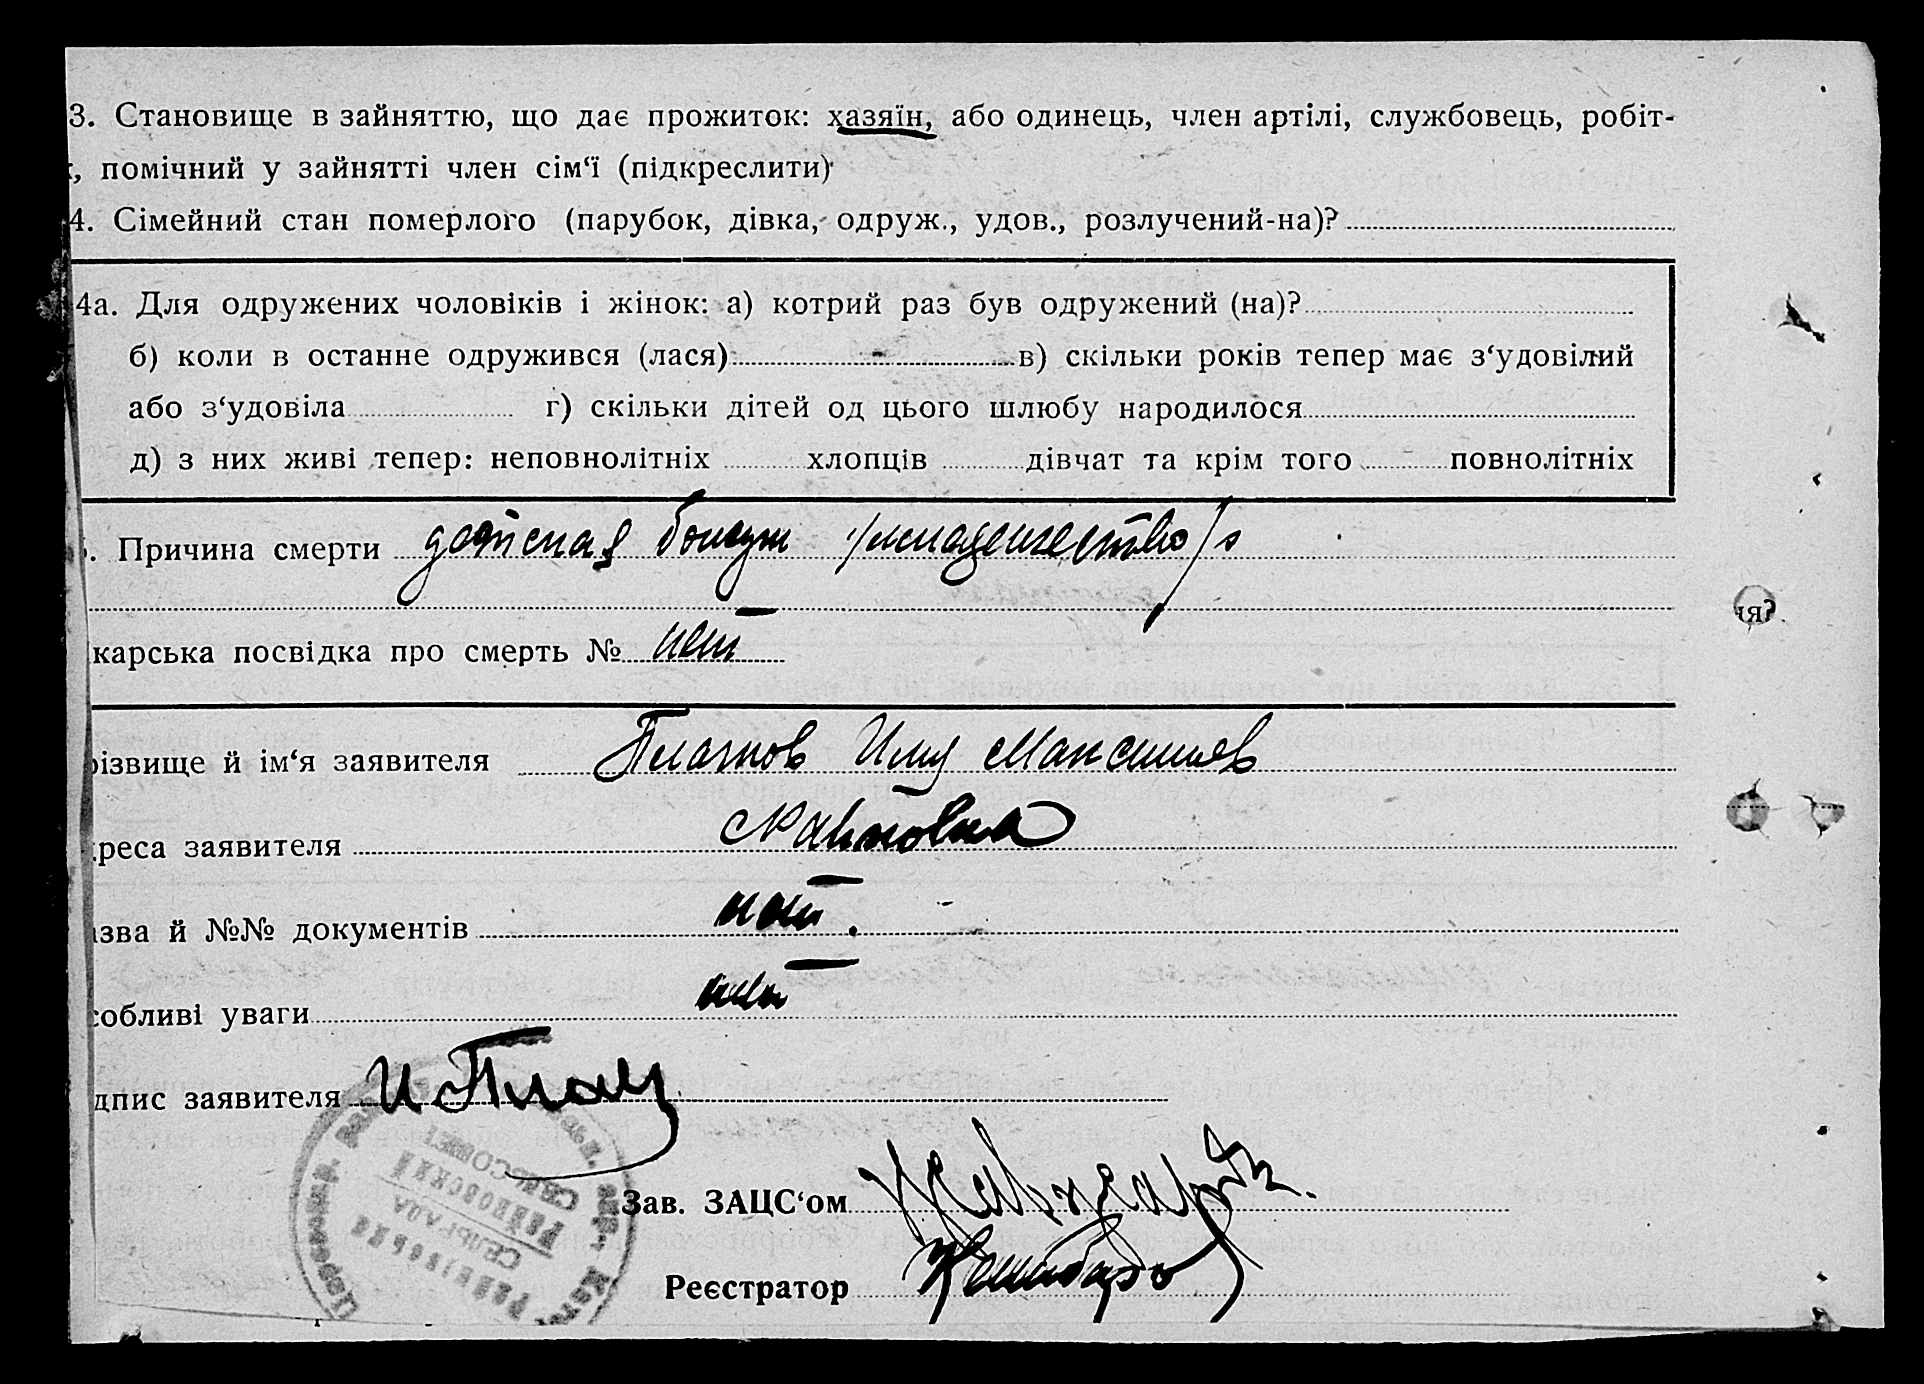 3. Становище в зайняттю, що дає прожиток: хазяїн, або одинець, член артілі, службовець, робіт-
, помічний у зайнятті член сім‘ї (підкреслити)
4. Сімейний стан померлого (парубок, дівка, одруж., удов., розлучений-на)?
4а. Для одружених чоловіків і жінок: а) котрий раз був одружений (на)?
б) коли в останне одружився (лася) в) скільки років тепер має з‘удовілий
або з‘удовіла г) скільки дітей од цього шлюбу народилося
д) з них живі тепер: неповнолітніх хлопців дівчат та крім того повнолітніх
. Причина смерти детская
ия?
карська посвідка про смерть № нет
різвище й ім‘я заявителя Платнов Илия Максимов
реса заявителя Райновка
зва й №№ документів нет.
собливі уваги нет
дпис заявителя И Плат
Зав. ЗАЦС‘ом
Реєстратор
РАЙНІВСЬКА
СІЛЬРАДА
РАЙНОВСКИЙ
СЕЛЬСОВЕТ